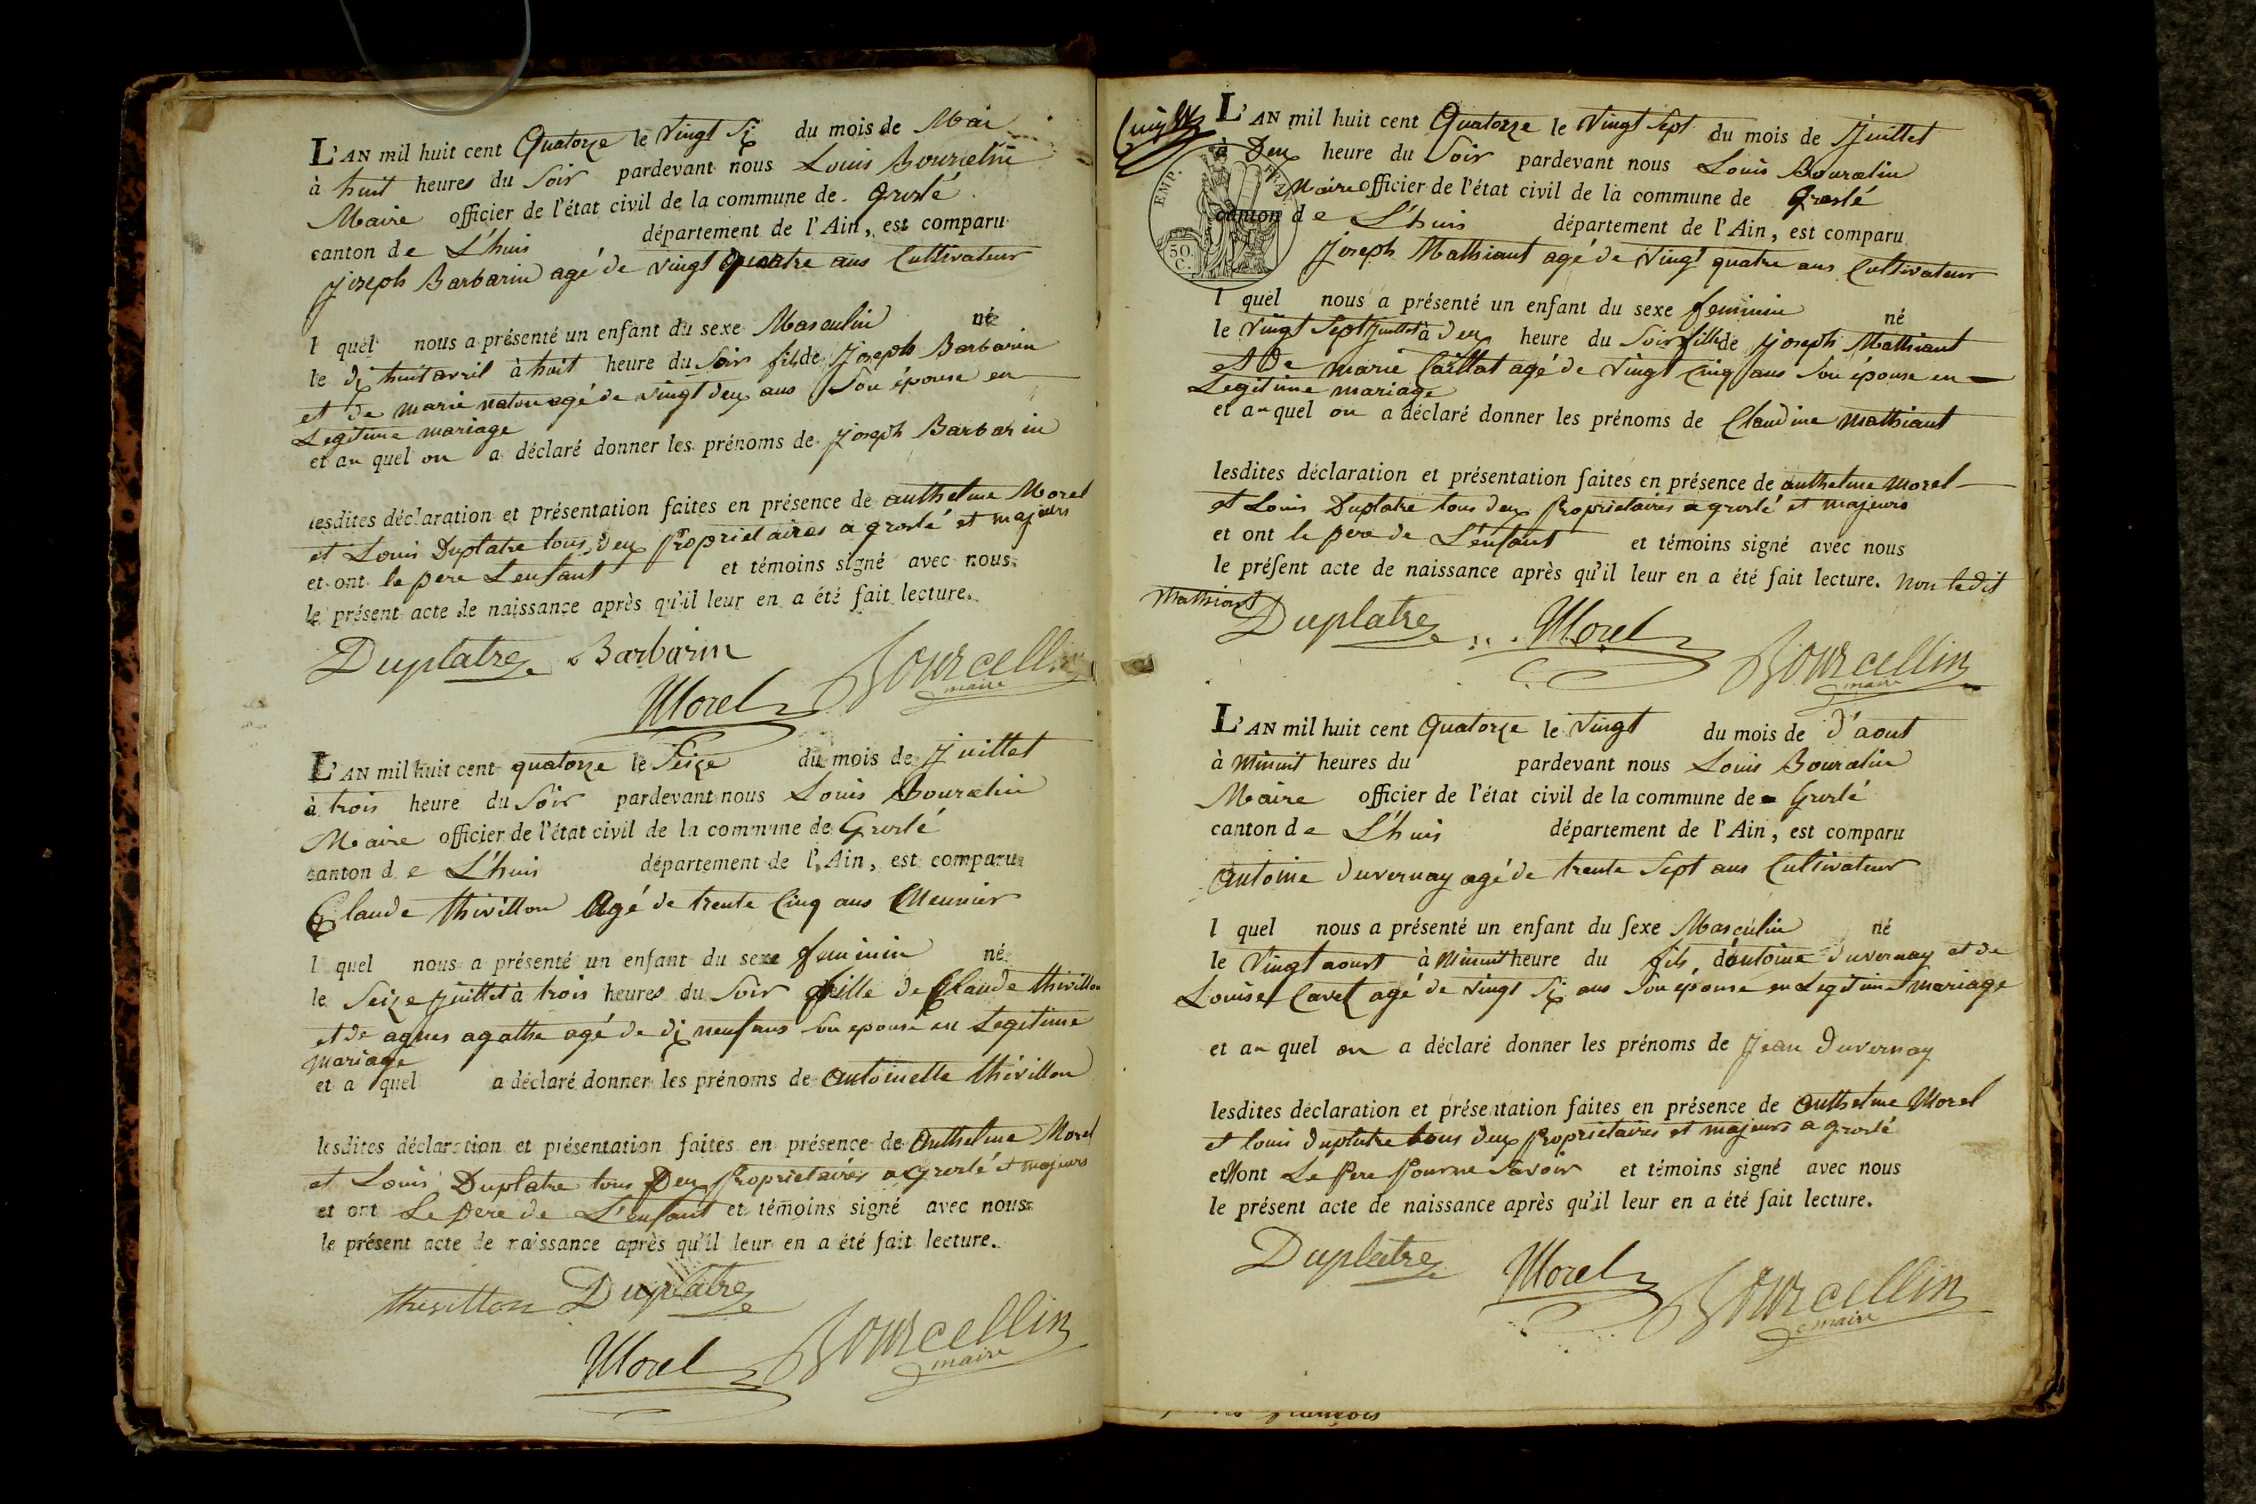 L'AN mil huit cent Quatorze le vingt Six du mois de Mai
à huit heures du Soir pardevant nous Louis Bourcelin
Maire officier de l'état civil de la commune de Groslé
canton de L'huis département de l'Ain, est comparu
joseph Barbarin agé de vingt quatre ans Cultivateur
l quel nous a présenté un enfant du sexe Masculin né
le dix huit avril à huit heure du Soir fils de joseph Barbarin
et de marie naton agé de vingt deux ans Son épouse en
Legitime mariage
et au quel on a déclaré donner les prénoms de joseph Barbarin
lesdites déclaration et présentation faites en présence de anthelme Morel
et Louis Duplatre tous deux Proprietaires a groslé et majeurs
et ont le pere Lenfant et témoins signé avec nous
le présent acte de naissance après qu'il leur en a été fait lecture.
Duplatre Barbarin
Morel Bourcellin
maire
L'AN mil huit cent quatorze le Seize du mois de juillet
à trois heure du Soir pardevant nous Louis Bourcelin
Maire officier de l'état civil de la commune de Groslé
canton de L'huis département de l'Ain, est comparu
Claude thivillon Agé de trente Cinq ans Meunier
l quel nous a présenté un enfant du sexe feminin né
le Seize juillet à trois heures du Soir fille de Claude thivillon
et de agnes agathe agé de dix neuf ans Son epouse en Legitime
mariage
et a quel a déclaré donner les prénoms de antoinette thivillon
lesdites déclaration et présentation faites en présence de Anthelme Morel
et Louis Duplatre tous Deux Proprietaires a Groslé et majeurs
et ont Le pere de L'enfant et témoins signé avec nous
le présent acte de naissance après qu'il leur en a été fait lecture.
thivillon Duplatre
Morel Bourcellin
maire
L'AN mil huit cent Quatorze le vingt Sept du mois de juillet
à Deux heure du Soir pardevant nous Louis Bourcelin
EMP. FRAN.
Maire officier de l'état civil de la commune de Groslé
canton de L'huis département de l'Ain, est comparu
50
C.
joseph Mathiant agé de vingt quatre ans Cultivateur
l quel nous a présenté un enfant du sexe feminin né
le vingt Sept juillet à deux heure du Soir fille de joseph Mathiant
et De marie Caillat agé de vingt Cinq ans Son épouse en
Legitime mariage
et au quel on a déclaré donner les prénoms de Claudine Mathiant
lesdites déclaration et présentation faites en présence de anthelme Morel
et Louis Duplatre tous deux Proprietaires a groslé et majeurs
et ont le pere de L'enfant et témoins signé avec nous
le présent acte de naissance après qu'il leur en a été fait lecture. non ledit
Mathiant
Duplatre Morel
Bourcellin
maire
L'AN mil huit cent Quatorze le vingt du mois de d'aout
à minuit heures du pardevant nous Louis Bourcelin
Maire officier de l'état civil de la commune de Groslé
canton de L'huis département de l'Ain, est comparu
Antoine duvernay agé de trente Sept ans Cultivateur
l quel nous a présenté un enfant du sexe Masculin né
le vingt aoust à minuit heure du fils d'antoine duvernay et de
Louise Cavet agé de vingt Six ans Son épouse en Legitime mariage
et au quel on a déclaré donner les prénoms de jean duvernay
lesdites déclaration et présentation faites en présence de Anthelme Morel
et louis duplatre tous deux Proprietaires et majeurs a groslé
et Nont Le Pere Pour ne Savoir et témoins signé avec nous
le présent acte de naissance après qu'il leur en a été fait lecture.
Duplatre Morel Bourcellin
maire
françois